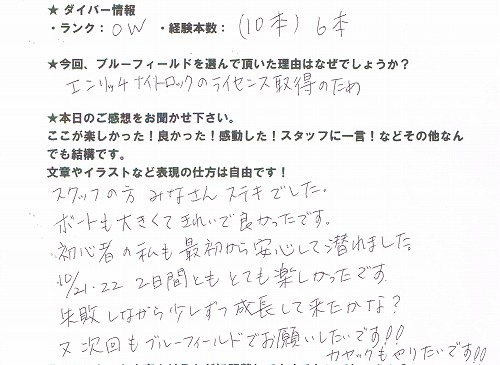 ★ ダイバー情報
・ランク： OW ・経験本数： (10本) 6本
★今回、ブルーフィールドを選んで頂いた理由はなぜでしょうか？
エンリッチナイトロックのライセンス取得のため
★本日のご感想をお聞かせ下さい。
ここが楽しかった！良かった！感動した！スタッフに一言！などその他なん
でも結構です。
文章やイラストなど表現の仕方は自由です！
スタッフの方 みなさん ステキでした。
ボートも大きくてきれいで良かったです。
初心者の私も最初から安心して潜れました。
10/21.22 2日間とも とても楽しかったです
失敗しながら少しずつ成長して来たかな？
又次回もブルーフィールドでお願いしたいです!!
カヤックもやりたいです!!